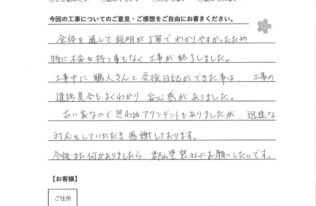 今回の工事についてのご意見・ご感想をご自由にお書きください。
全体を通して説明が丁寧でわかりやすかったため
特に不安を持つ事もなく工事が終了しました。
工事中に職人さんと交換日記ができた事は、工事の
進捗具合もよくわかり安心感がありました。
古い家なので思わぬアクシデントもありましたが、迅速な
対応をしていただき感謝しております。
今後また何かありましたら、郡山塗装さんにお願いしたいです。
【お客様】
ご住所